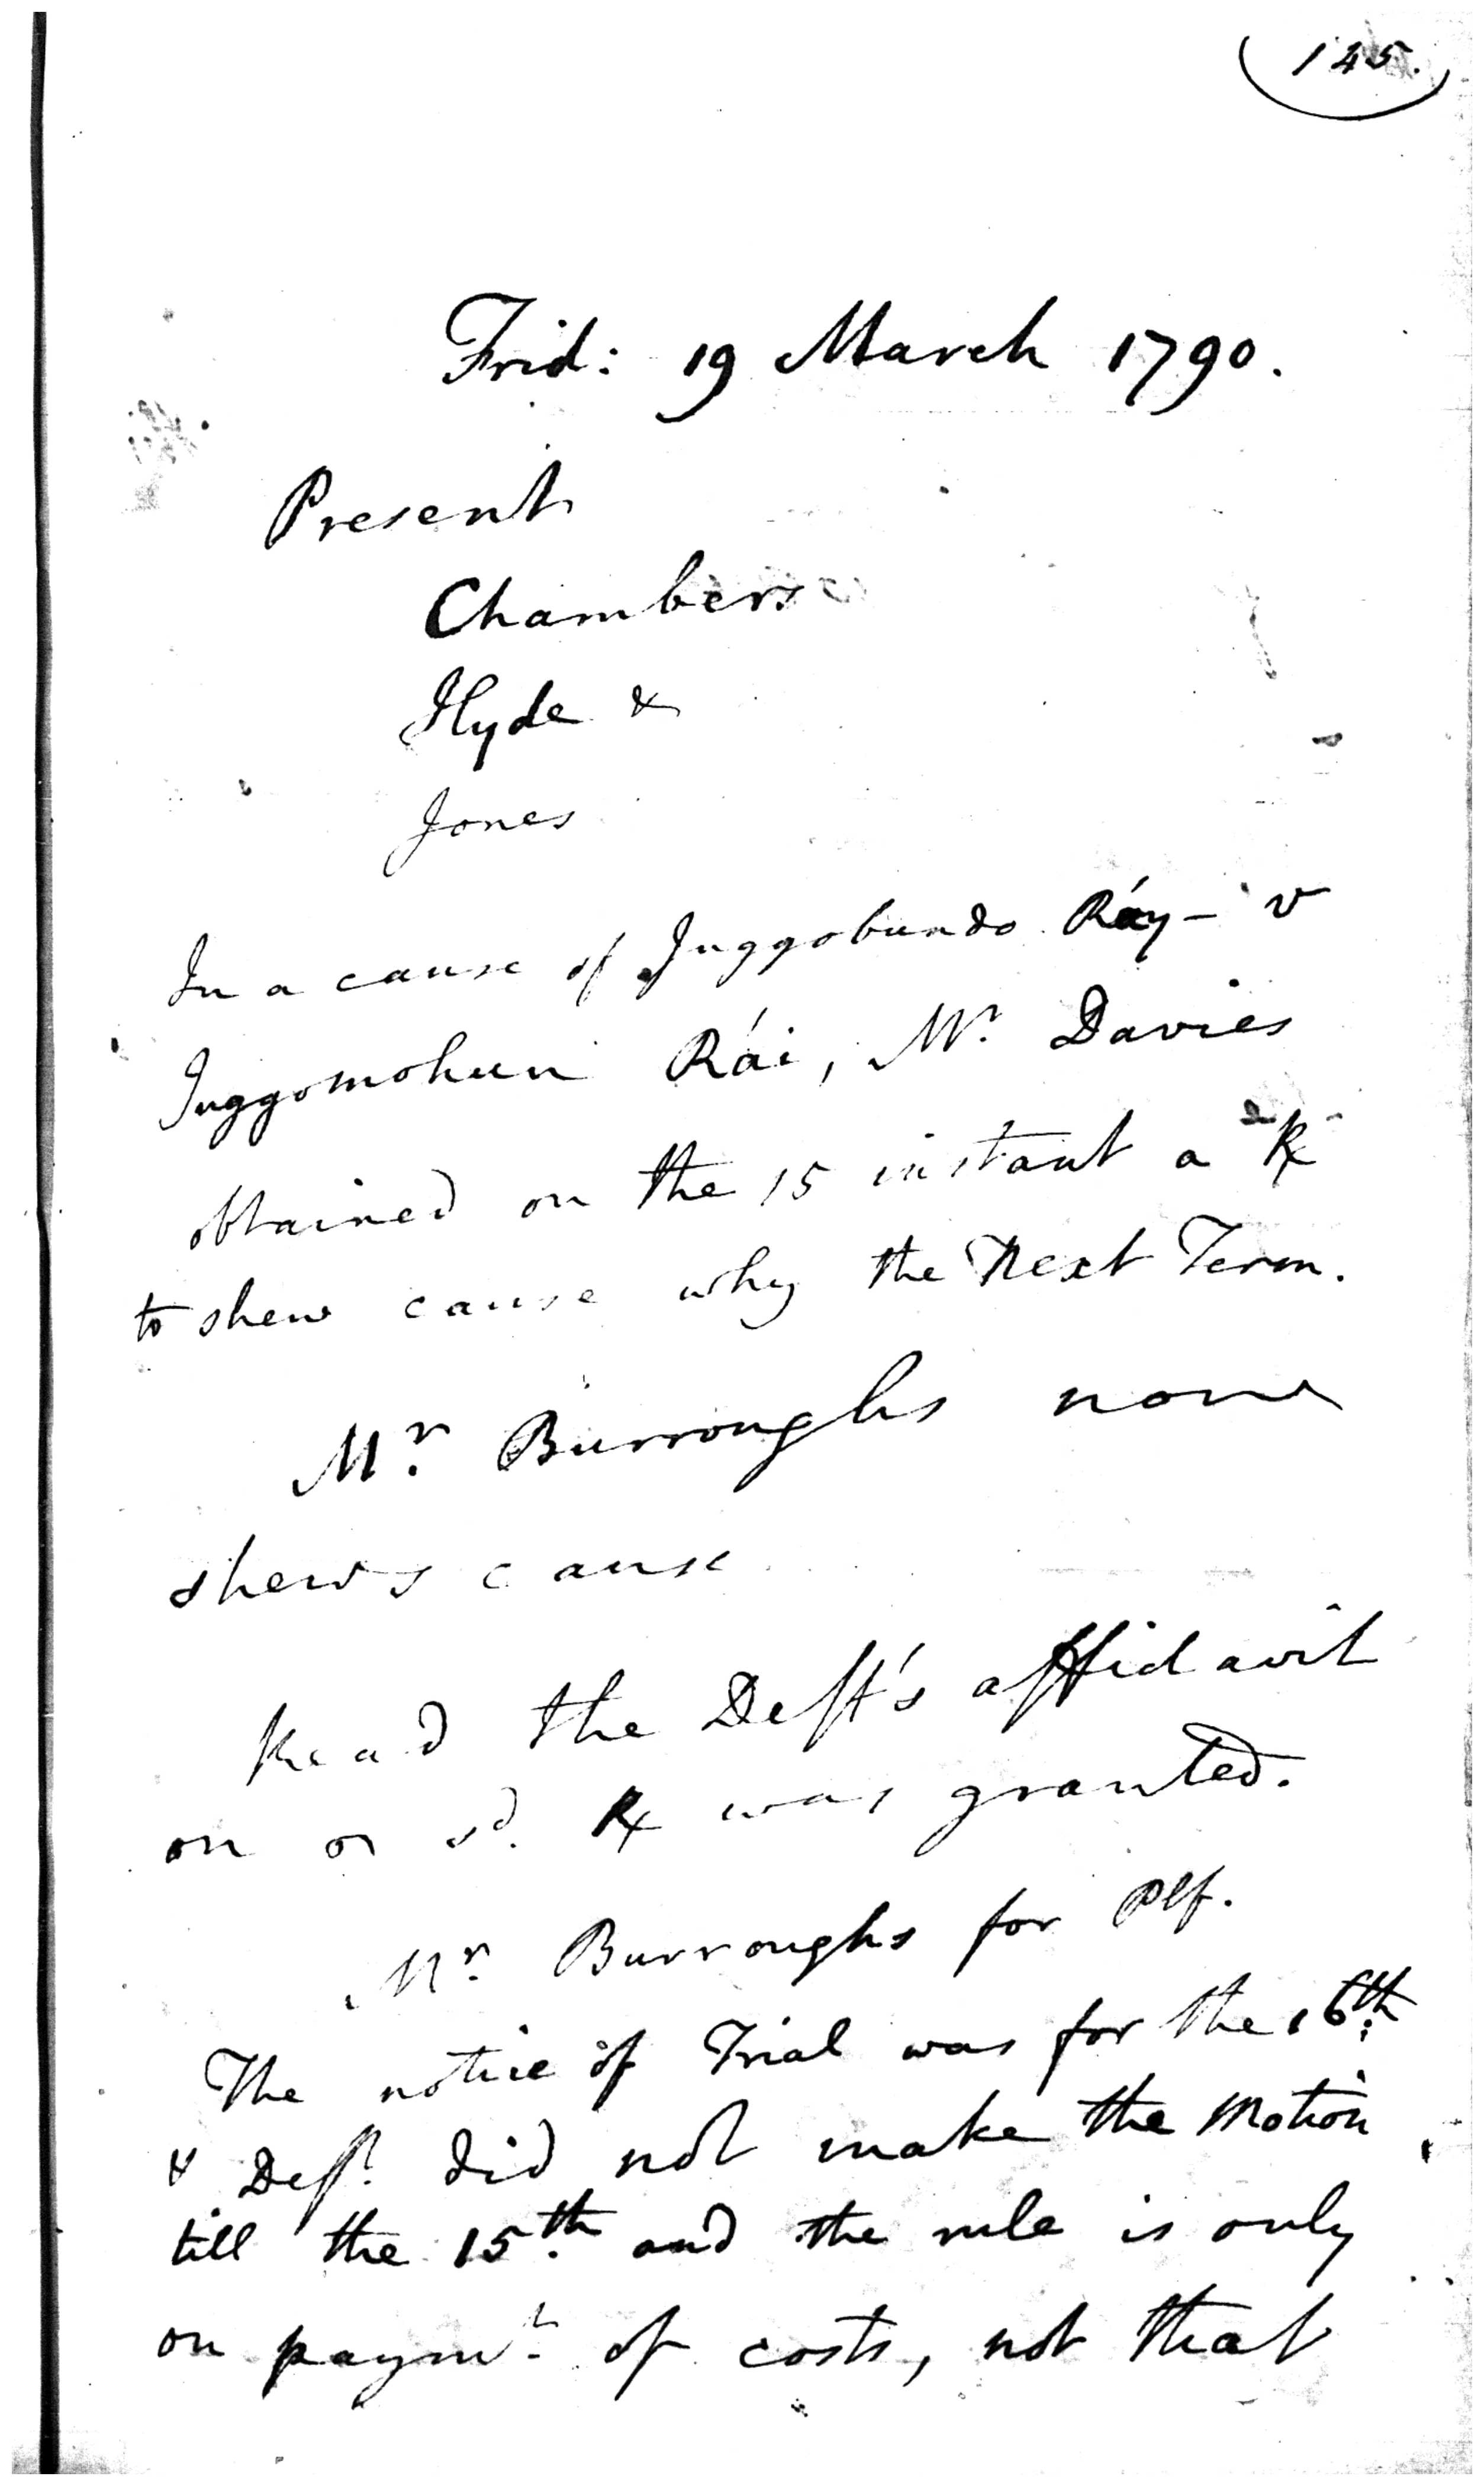 145.
Frid: 19 March 1790.
Present
Chambers
Hyde &
Jones
In a cause of Juggobundo Ráy - v
Juggomohun Rái, Mr. Davies
obtained on the 15 instant a R
to shew cause why the Next Term.
Mr. Burroughs now
shews cause
Read the Deft's affidavit
on sd. R was granted.
Mr. Burroughs for Plf.
The notice of Trial was for the 16th.
& Deft. did not make the Motion
till the 15th. and the rule is only
on paymt. of costs, not that